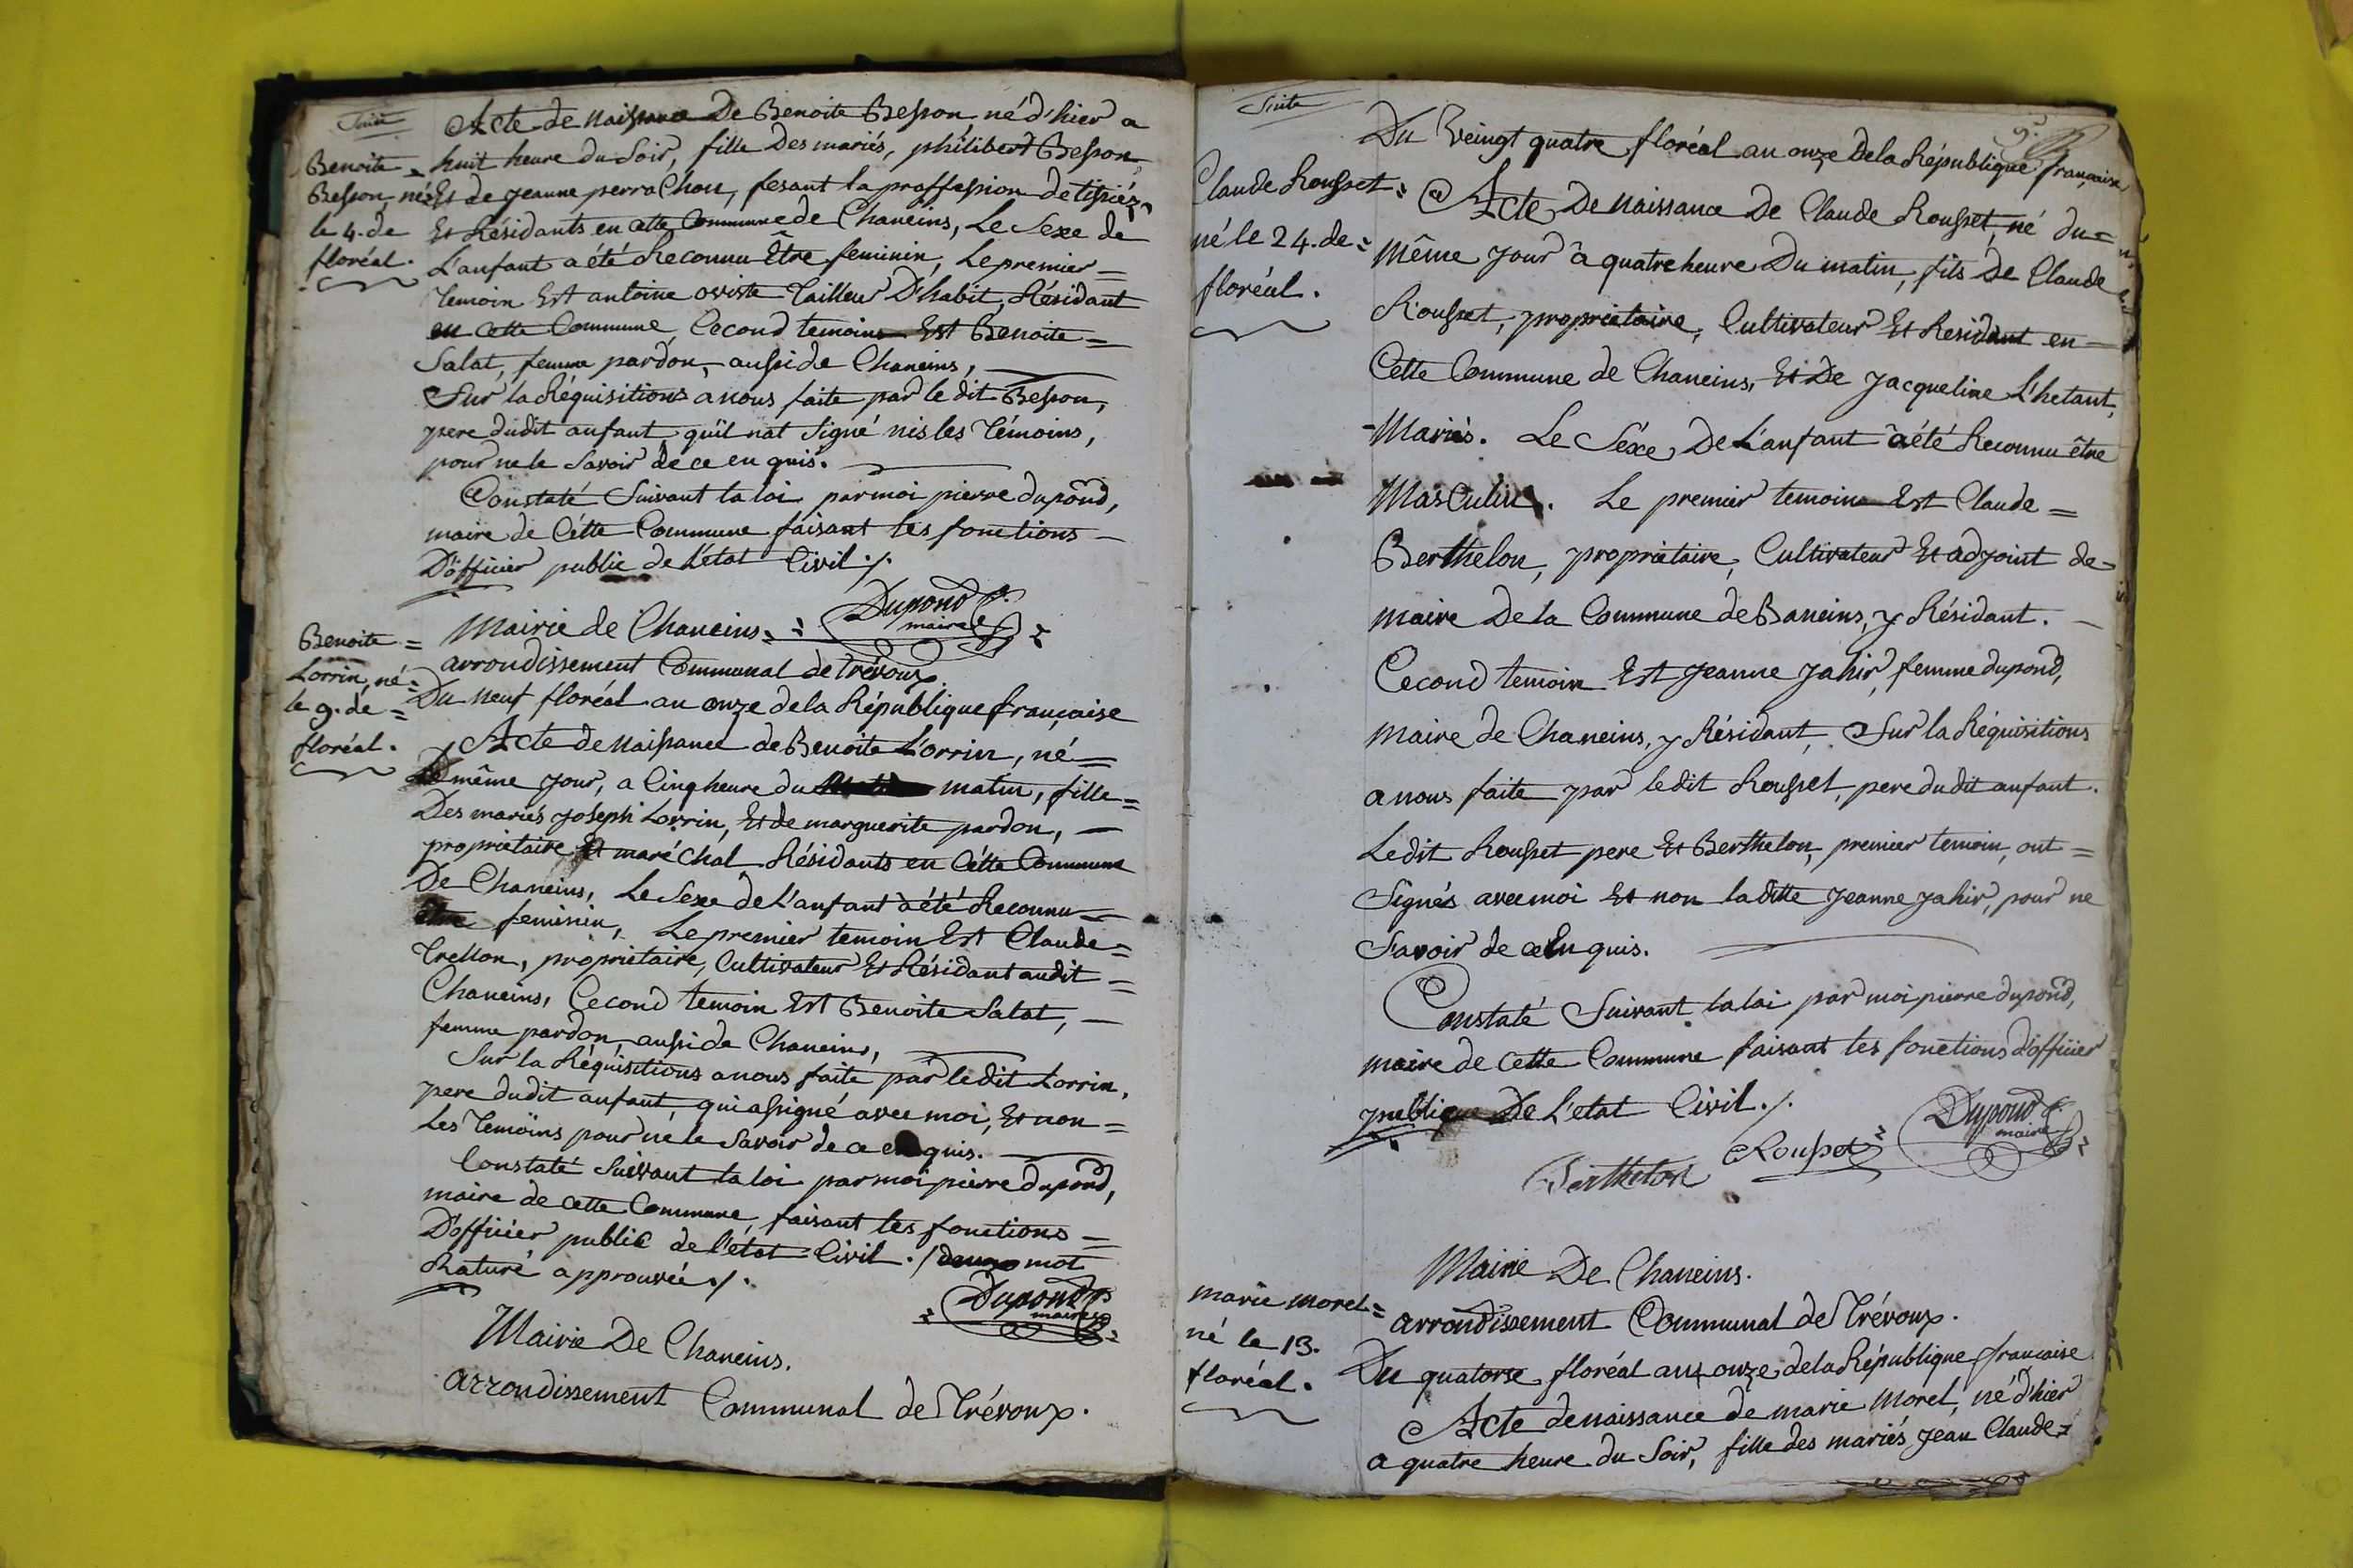 Suite
Acte de naissance De Benoite Besson, né d'hier a
Benoite
Besson, né
le 4. de
floréal.
huit heure du Soir, fille Des mariés, philibert Besson
Et de Jeanne perrachon, fesant la proffession de
Et Résidants en cette Commune de Chaneins, Le Sexe de
L'anfant a été Reconnu Être feminin, Le premier =
Temoin Est antoine oviste Tailleur D'habit, Résidant
en cette Commune, Cecond temoins Est Benoite =
Salat, femme pardon, aussi de Chaneins,
Sur la Réquisitions a nous faite par le dit Besson,
pere dudit anfant, quil nat Signé nis les Témoins,
pour ne le Savoir de ce en quis.
Constaté Suivant la loi par moi pierre dupond,
maire de Cétte Commune faisant les fonctions
D'officier public de L'état Civil ./.
Dupond
maire
Mairie de Chaneins.
arrondissement Communal de Trévoux.
Benoite =
Lorrin, né =
le 9. de =
floréal.
Du neuf floréal an onze de la République française
Acte de naissance de Benoite Lorrin, né =
Le même Jour, a Cinq heure du matin, fille =
Des mariés Joseph Lorrin, Et de marguerite pardon,
propriétaire Et maréchal Résidants en Cétte Commune
De Chaneins, Le Sexe de L'anfant a été Reconnu =
être feminin, Le premier temoin Est Claude =
Trellon, propriétaire, Cultivateur Et Résidant audit =
Chaneins, Cecond temoin Est Benoite Salat,
femme pardon, aussi de Chaneins,
Sur la Réquisitions a nous faite par le dit Lorrin,
pere dudit anfant, qui a signé avec moi, Et non =
Les Temoins pour ne le Savoir de ce enquis.
Constaté Suivant la loi par moi pierre dupond,
maire de cette Commune, faisant les fonctions =
D'officier public de l'état Civil. / mot
Raturé approuvée ./.
Dupond
maire
Mairie De Chaneins.
arrondissement Communal de Trévoux.
Suite
9.
Du Veingt quatre floréal an onze De la République française
Claude Rousset
né le 24. de
floréal.
Acte De naissance De Claude Rousset, né du =
Même Jour à quatre heure Du matin, fils De Claude
Rousset, propriétaire, Cultivateur Et Résidant en
Cette Commune de Chaneins, Et De Jacqueline L'hetant,
Mariés. Le Séxe De L'anfant a été Reconnu être
Masculin. Le premier temoins Est Claude =
Berthelon, propriétaire, Cultivateur Et adjoint de
maire De la Commune de Baneins, y Résidant.
Cecond temoin Est Jeanne Jahir, femme dupond,
maire de Chaneins, y Résidant, Sur la Réquisitions
a nous faite par le dit Rousset, pere dudit anfant.
Le dit Rousset pere Et Berthelon, premier temoin, ont =
Signés avec moi Et non la ditte Jeanne Jahir, pour ne
Savoir de ce En quis.
Constaté Suivant la loi par moi pierre dupond,
maire de cette Commune faisant les fonctions d'officier
publique De L'etat Civil ./.
Dupond
maire
Rousset
Berthelon
Mairie De Chaneins.
arrondissement Communal de Trévoux.
marie morel =
né le 13.
floréal.
Du quatorse floréal an onze de la République francaise
Acte de naissance de marie Morel, né d'hier
a quatre heure du Soir, fille des mariés Jean Claude =